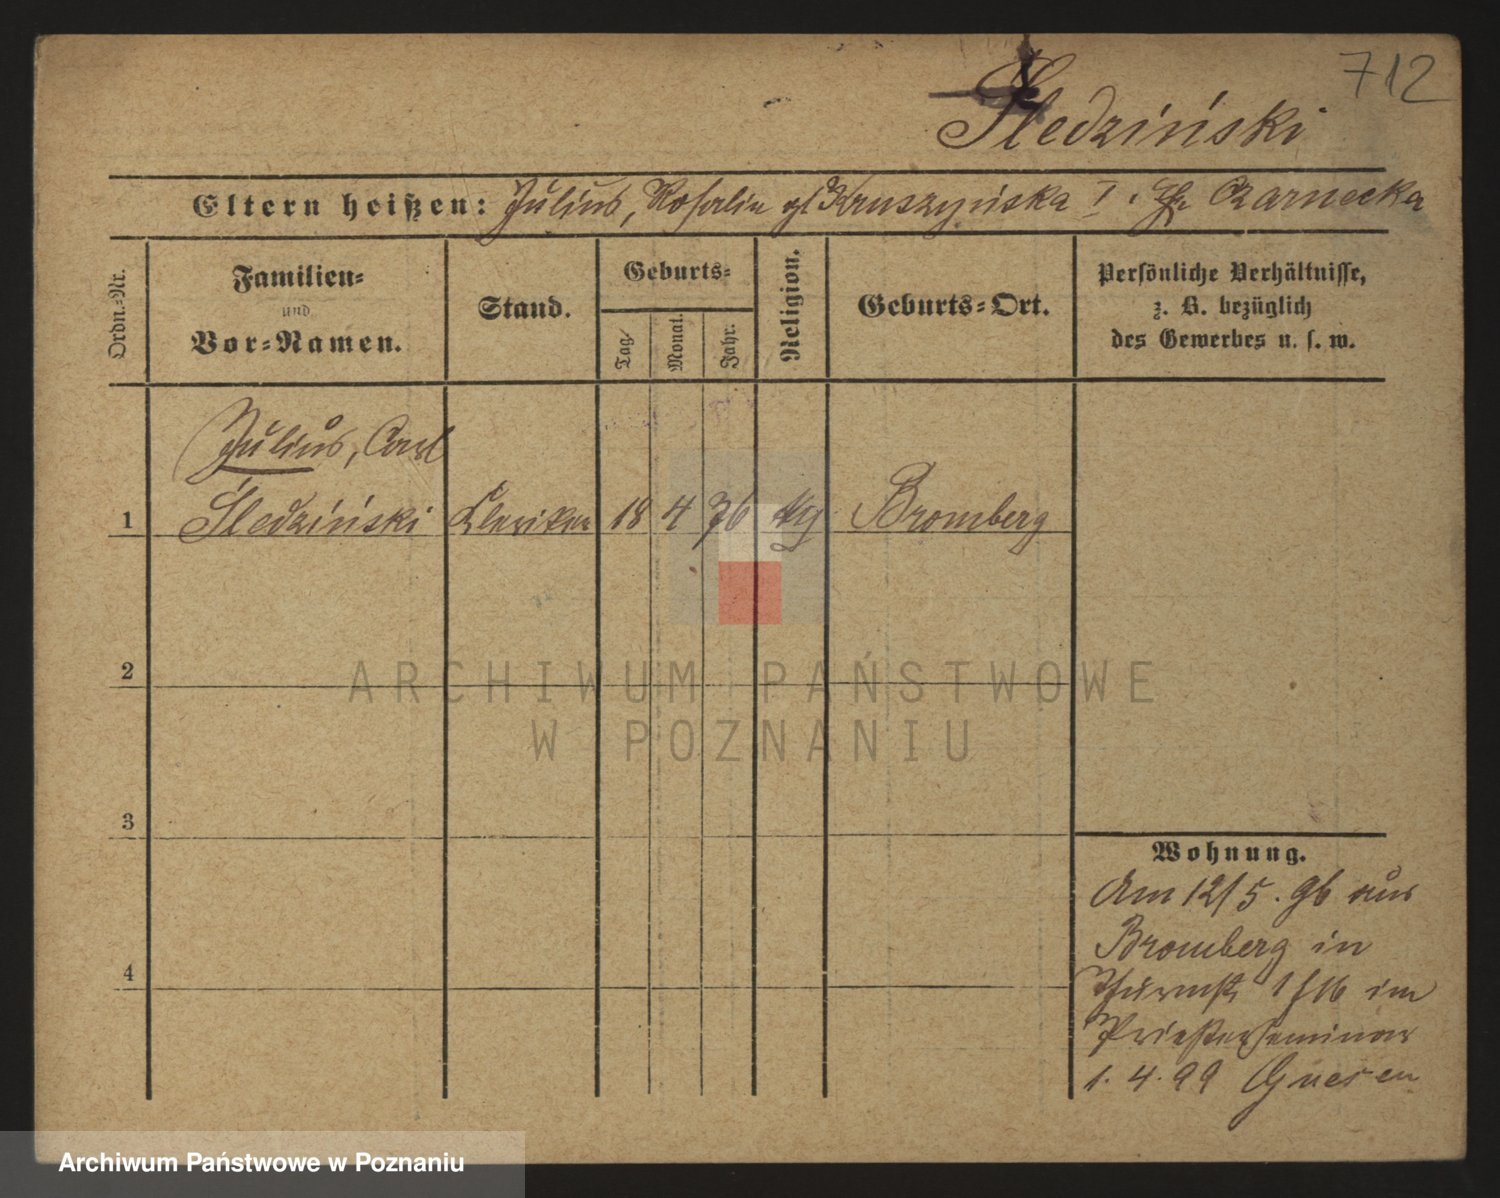 712
Śledziński
Eltern heißen: Julius, Rosalie gb Kruszyńska I. Eh Czarnecka
Ordn.=Nr.
Familien=
und
Vor=Namen.
Stand.
Geburts=
Tag
Monat.
Jahr.
Religion.
Geburts=Ort.
Persönliche Verhältnisse,
z. B. bezüglich
des Gewerbes u. s. w.
Julius, Carl
1 Śledziński Kleriker 18 4 76 Bromberg
2
3
4
Wohnung.
Am 12/5. 96 aus
Bromberg in
Thurmstr im
Priesterseminar
1. 4. 99 Gnesen
ARCHIWUM PAŃSTWOWE
W POZNANIU
Archiwum Państwowe w Poznaniu